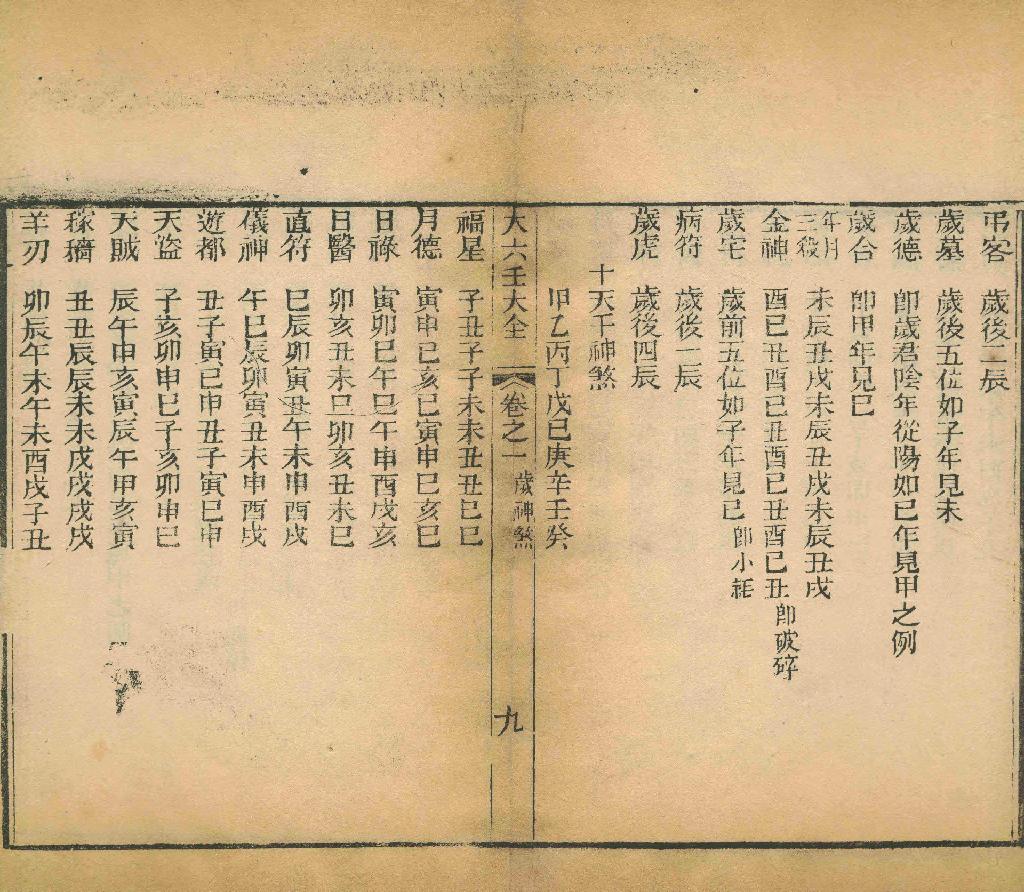 弔客 歲後二辰
歲墓 歲後五位如子年見未
歲德 卽歲君陰年從陽如巳年見甲之例
歲合 卽甲年見巳
年月三殺 未辰丑戌未辰丑戌未辰丑戌
金神 酉巳丑酉巳丑酉巳丑酉巳丑 卽破碎
歲宅 歲前五位如子年見巳 卽小耗
病符 歲後一辰
歲虎 歲後四辰
十天干神煞
甲乙丙丁戊巳庚辛壬癸
大六壬大全 卷之一 歲神煞 九
福星 子丑子子未未丑丑巳巳
月德 寅申巳亥巳寅申巳亥巳
日祿 寅卯巳午巳午申酉戌亥
日醫 卯亥丑未巳卯亥丑未巳
直符 巳辰卯寅丑午未申酉戌
儀神 午巳辰卯寅丑未申酉戌
遊都 丑子寅巳申丑子寅巳申
天盜 子亥卯申巳子亥卯申巳
天賊 辰午申亥寅辰午甲亥寅
稼穡 丑丑辰辰未未戌戌戌戌
羊刃 卯辰午未午未酉戌子丑